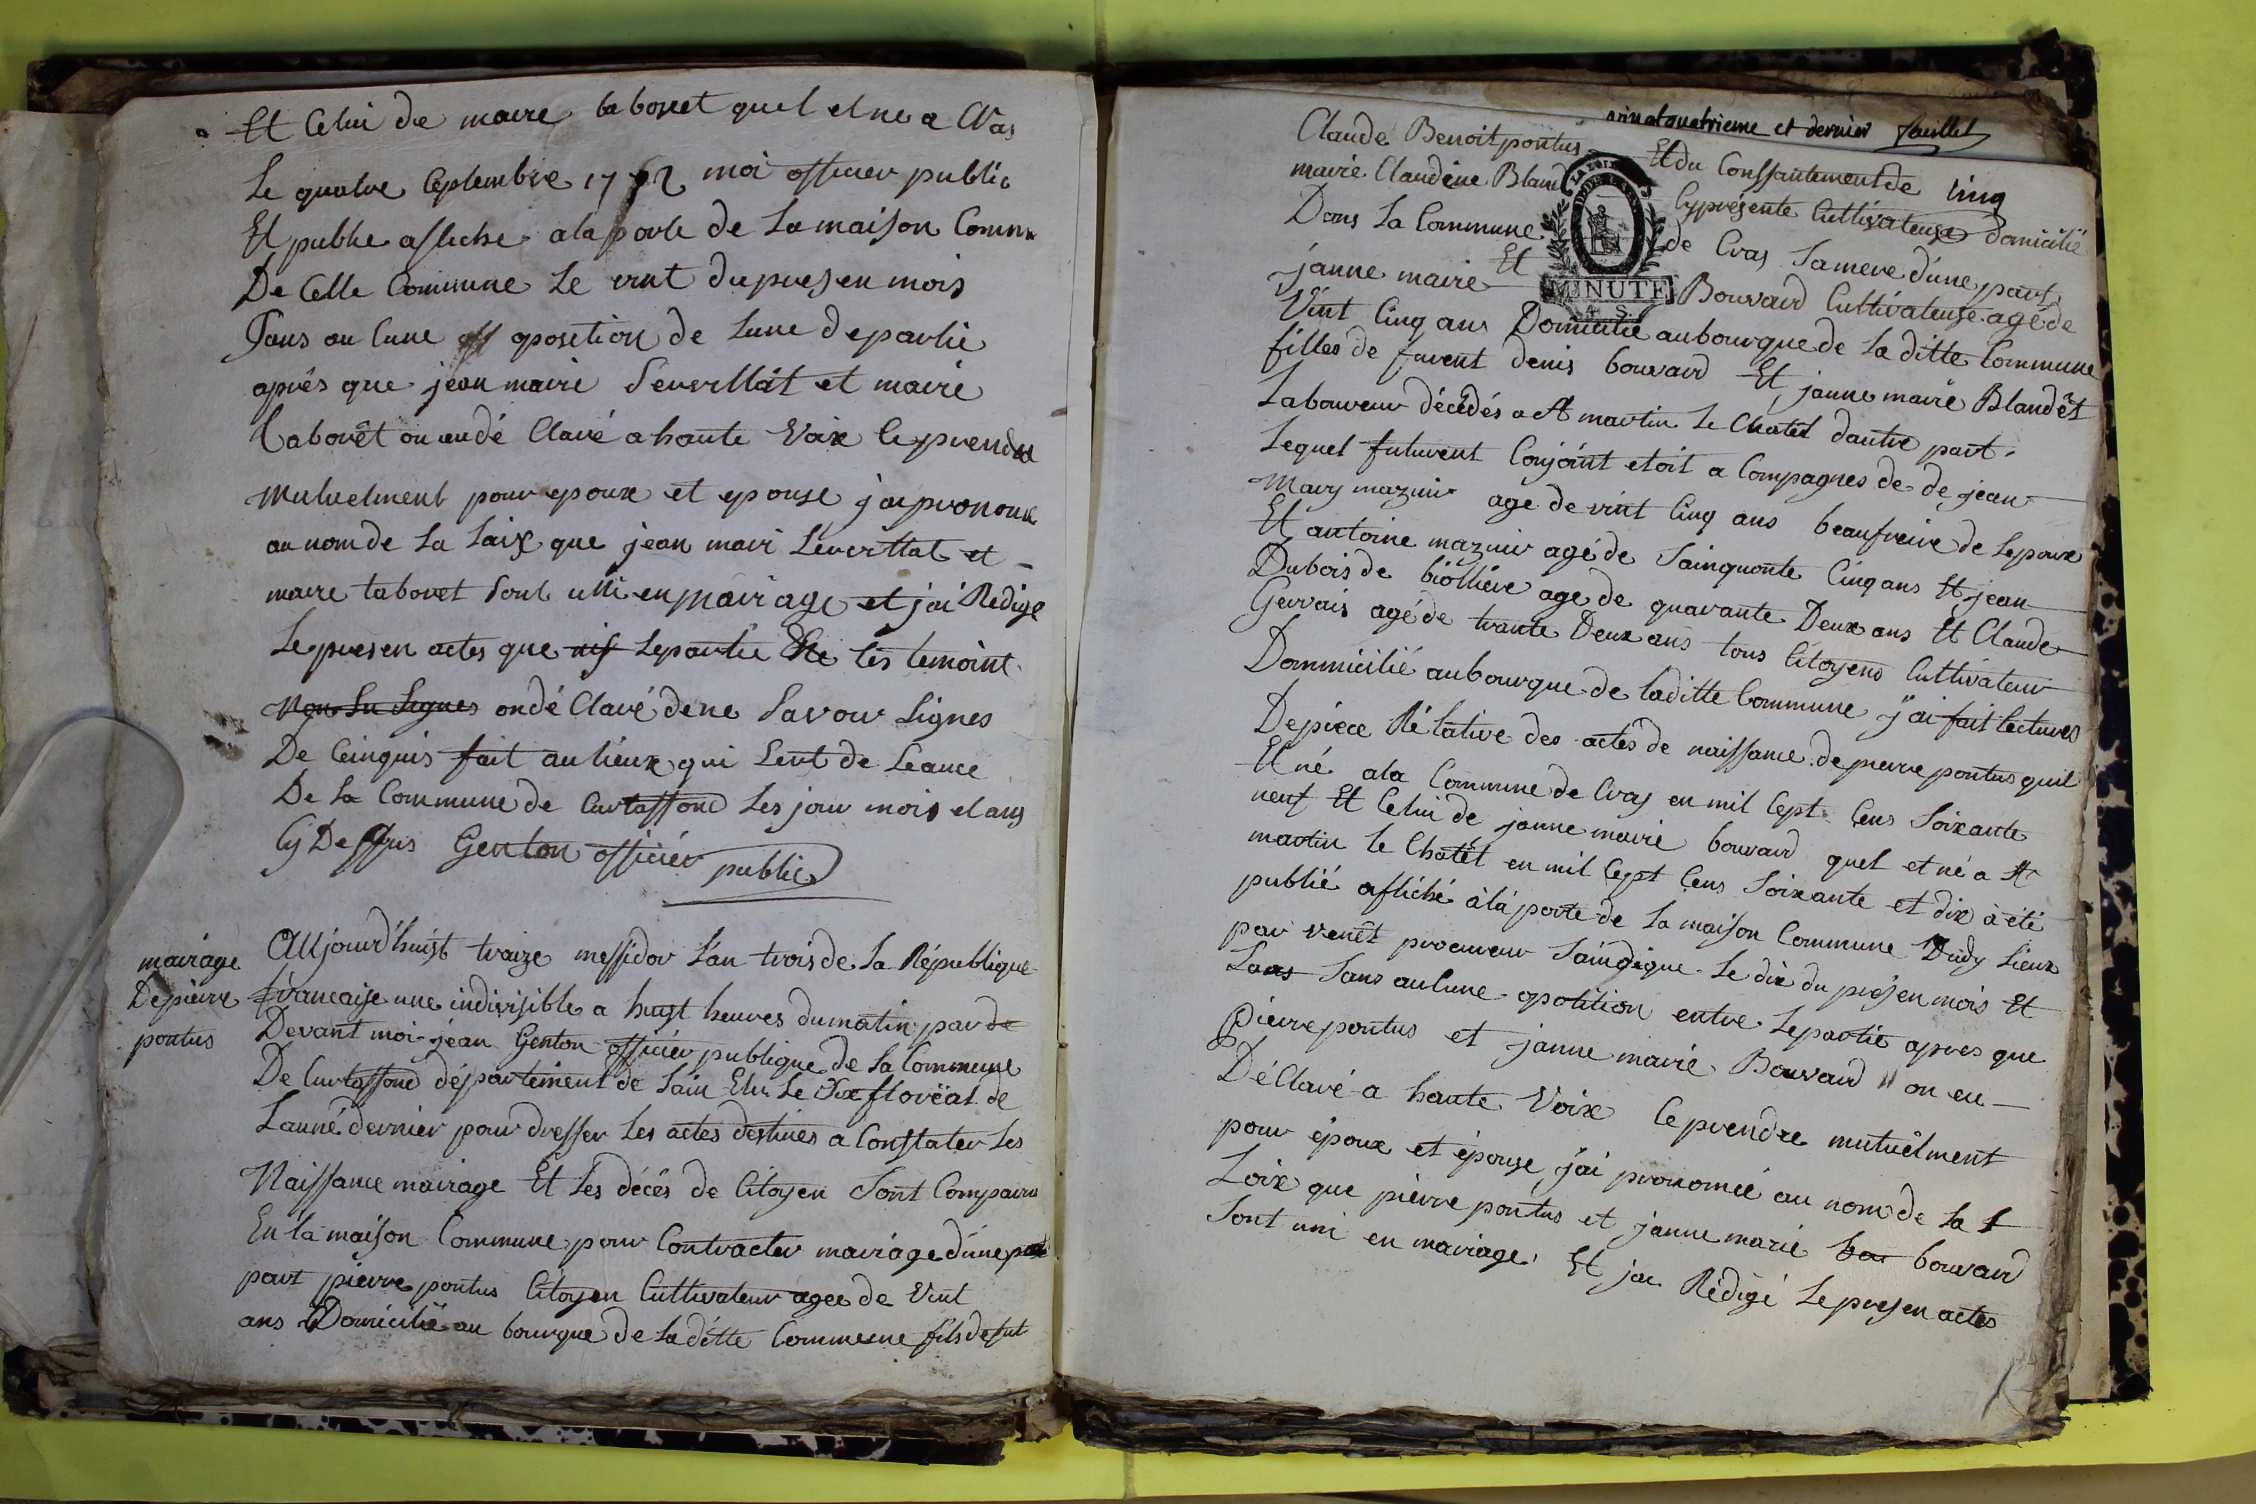 Et Celui de marie tabouet quel et ne a Cras
Le quatre Ceptembre 1772 moi officier public
Et publie afliche ala porte de La maison Commu
De Celle Commune Le vint du presen mois
Sans au Cune oposition de Lune departie
aprés que jean marie Leverillat et marie
tabouêt on eudé Claré a haute Voix Ce prendre
Mutuelment pour epoux et epouse jai prononce
au nom de La Loix que jean mari Léverillat et
marie tabouet Sont uni en mairiage et jai Redige
Le presen actes que Lepartie Et les temoint
non Su Signes ondé Claré de ne Savoir Signes
De Cinquis fait aulieux qui Sert de Seance
De La Commune de Curtaffond Les jour mois et ans
Cy Deffus Genton officiér public
mairiage
De pierre
pontus
Aujourd'huist traize messidor L'an trois de La République
francaise une indivisible a huyt heures du matin par de
Devant moi jéan Genton officiér publique de La Commune
De Curtaffond département de Lain Elu Le Dix floréal de
L'anné dernier pour dresser Les actes destinés a Constater Les
Naissance mairiage Et Les décès de Citoyen Sont Comparus
En la maison Commune pour Contracter mariage d'une par
part pierre pontus Citoyen Cultivateur agee de Vint
ans Domicilié au bourgue de La ditte Commeune fils de fut
cinqt quatrieme et dernier feuillet
Claude Benoit pontus Et du Conssantement de
cinq
marie Claudine Bland Cyprésente Cultivateuse domicilié
Dans La Commune de Cras Samere d'une part
LA LOI
MINUTE
4 S.
janne marie Et Bouvard Cultivateuse agé de
Vint Cinq ans Domicilié au bourgue de La ditte Commune
filles de furent denis bouvard Et janne marie Blandêt
Laboureur décédés a St martin Le Chatel dautre part.
Lequel futurent Conjoint etoit a Compagnes de de jean
Mary mazuir age de vint Cinq ans beaufreire de Lepoux
Et antoine mazuir agé de Sainquante Cinq ans Et jean
Dubois de biolliére age de quarante Deux ans Et Claude
Gervais agé de trante Deux ans tous Citoyens Cultivateur
Dommicilié au bourgue de laditte Commune j'ai fait lectures
De piece Rélative des actes de naissance de pierre pontus quil
Et né ala Commune de Cras en mil Cept Cens Soixante
neuf Et Celui de janne marie bouvard quel et né a St
martin le Chatêl en mil Cept Cens Soixante et dix à été
publié afliché à la porte de La maison Commune Dudy Lieux
par venêt procureur Saindique Le dix du présen mois Et
Sans Sans aulune opolition entre Lepartie apres que
Pierre pontus et janne marie Bouvard on eu
Dé Claré a haute Voix Ce prendre mutuêlment
pour époux et épouse, j'ai prononcé au nom de La L
Loix que pierre pontus et janne marie bou bouvard
Sont uni en mariage. Et jai Rédigé Le presen actes